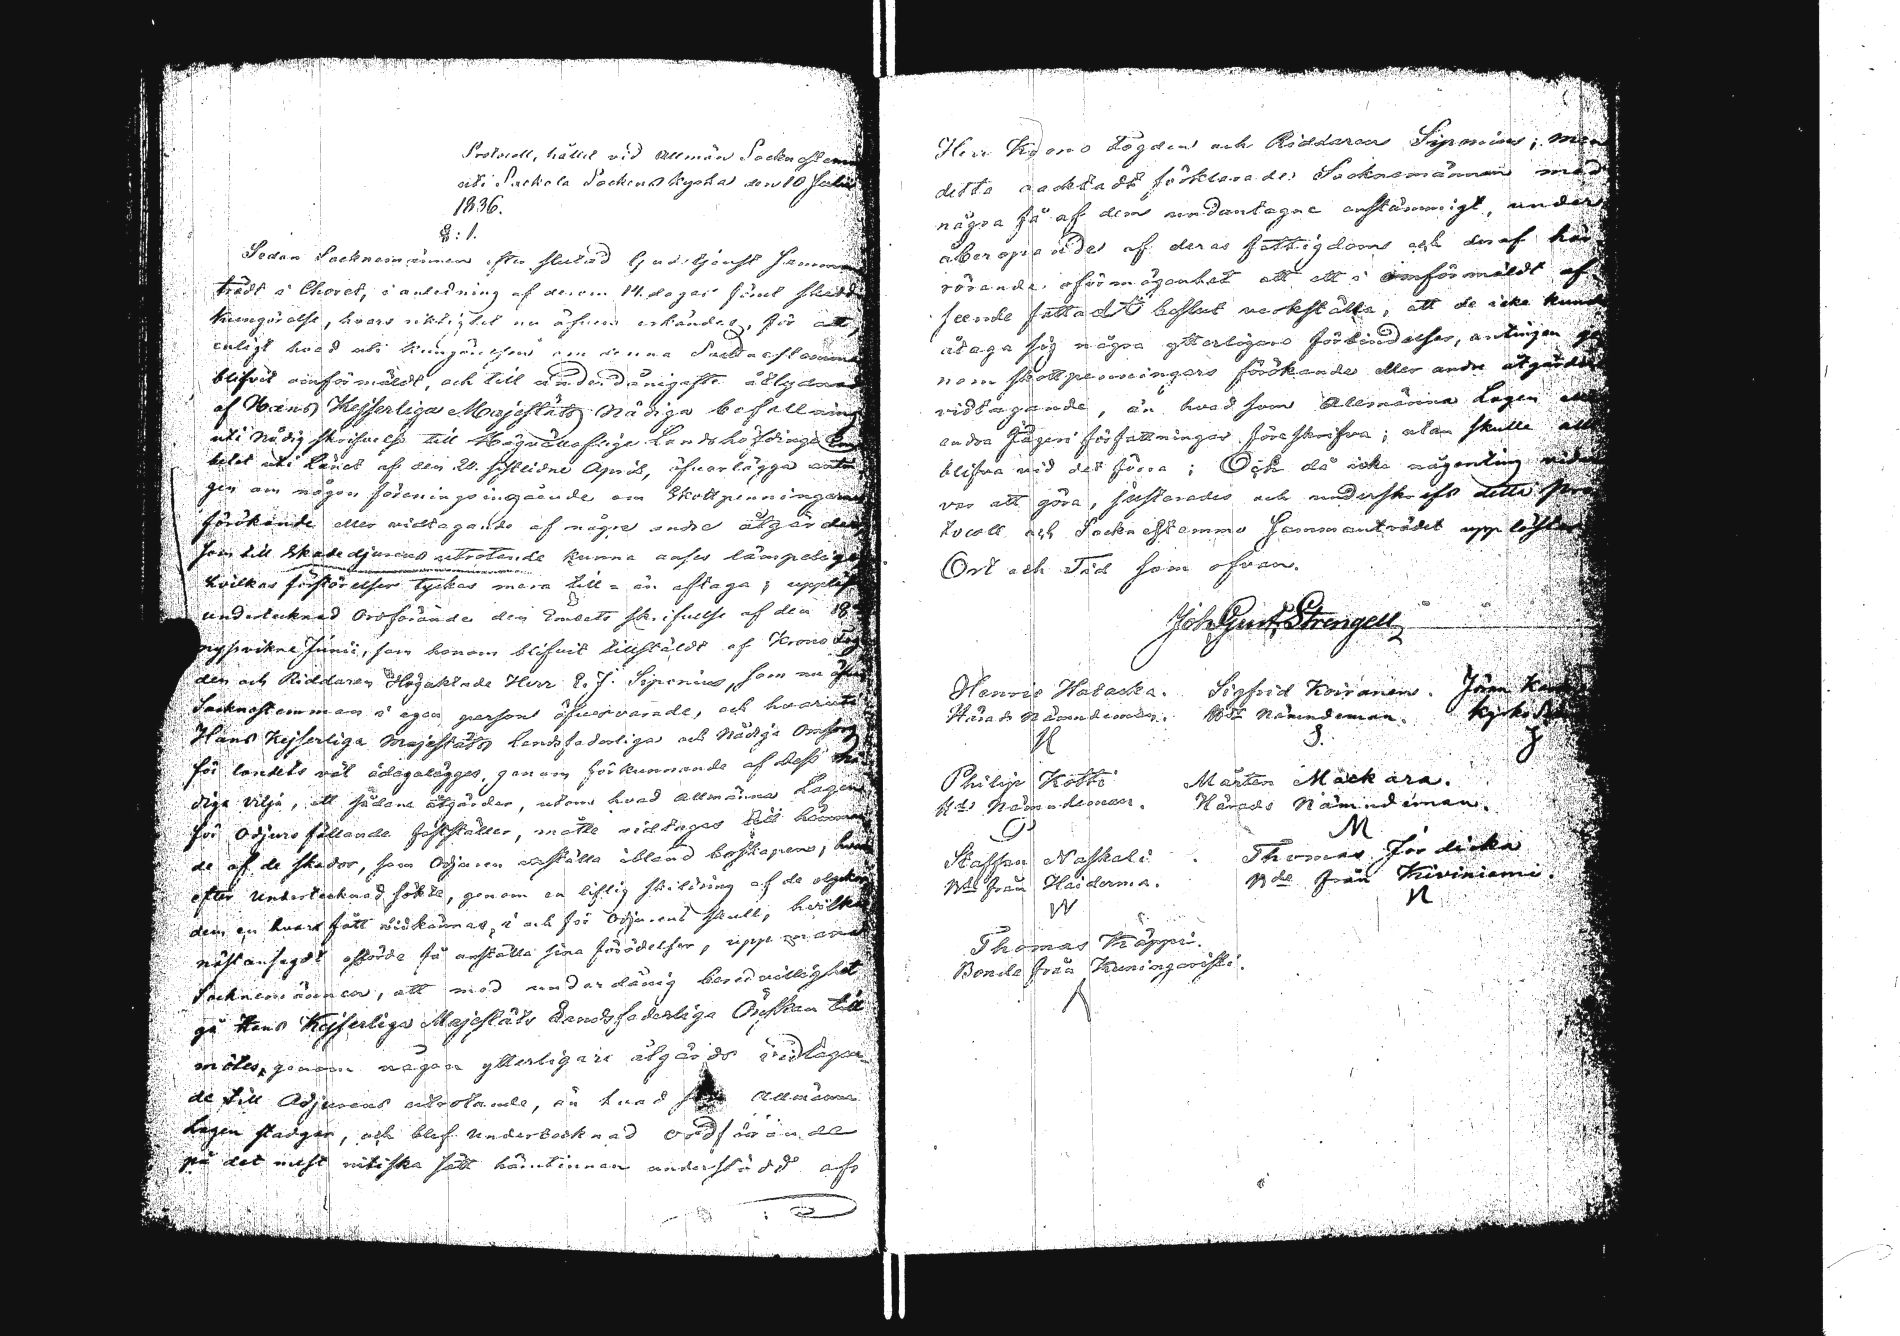 Protocoll, hållet vid Allmän Sockenstemma
uti Sackola Sockens kyrka den 10 Julii
1836.
§: 1.
Sedan Socknemännen efter slutad Gudstjenst samman
trädt i Choret, i anledning af derom 14. dagar förut skedd
kungörelse, hvars riktighet nu äfven erkändes, för att,
enligt hvad uti kungörelsen om denna Socknestemma
blifvit omförmäldt, och till underdånigste åtlydnad
af Hans Kejserliga Majestäts Nådiga befallning
uti Nådig skrifvelse till Landshöfdinge Em
betet uti Länet af den 20. sistlidne April, öfverlägga
om någon förenings ingående om Skottpenningarnes
förökande eller vidtagande af någre andre åtgärder,
som till Skadedjurens utrotande kunna anses lämpelige,
hvilkas förstörelser tyckas mera till- än aftaga; uppläste
undertecknad Ordförande den Embets skrifvelse af den 18
nyssvikne Junii, som honom blifvit tillstäldt af Krono Fog
den och Riddaren Högaktade Herr E. J. Sipenius, som nu
Socknestemman i egen person öfvervarade, och hvaruti
Hans Kejserliga Majestäts landsfaderliga och Nådiga Omsorg
för landets väl ådagalägges, genom förkunnande af Dess Nå
diga vilja, att sådane åtgärder, utom hvad Allmänna Lagen
för Odjurs fällande fastställer, måtte vidtagas till hämman
de af de skador, som Odjuren anställa ibland boskapen; hvar
efter Undertecknad sökte, genom en liflig skildring af de olyckor
dem en hvar fått vidkännas, i och för Odjurens skull, hvilka
nästansagdt ostörde få anställa sina förödelser, uppmana
Socknemännen, att med underdånig beredvillighet
gå Hans Kejserliga Majestäts Landsfaderliga Önskan till
mötes, genom någon ytterligare åtgärds vidtagan
de till Odjurens utrotande, än hvad som Allmänna
Lagen stadgar, och blef Undertecknad Ordförande
på det mest nitiska sätt härutinnan understödd af
Herr Krono Fogden och Riddaren Sipenius; men
detta oacktadt förklarade Socknemännen med
några få af dem undantagne enstämmigt, under
åberopande af deras fattigdom och deraf här
rörande oförmögenhet att ett i omförmäldt af
seende fattadt beslut verkställa, att de icke kunde
åtaga sig några ytterligare förbindelser, antingen ge
nom skottpenningars förökande eller andre åtgärders
vidtagande, än hvad som Allmänna Lagen eller
andra Jägeri författningar föreskrifva; utan skulle allt
blifva vid det förra; Och då icke någonting vidare
var att göra, justerades och underskrefs detta Pro
tocoll och Socknestemmo Sammanträdet upplöstes
Ort och Tid som ofvan.
Joh. Gust. Strengell
Henric Hatacka. Sigfrid Koiranen. Jöran
Härads Nämndeman. Nämndeman. kyrko
H S. J
Philip Kotti Mårten Mäckärä.
Nämndeman. Härads Nämndeman.
P M
Staffan Naskali Thomas Jordicka
Bde från Haiderma. Bde från Kiviniemi.
N N
Thomas Käppi.
Bonde från Kuningaristi.